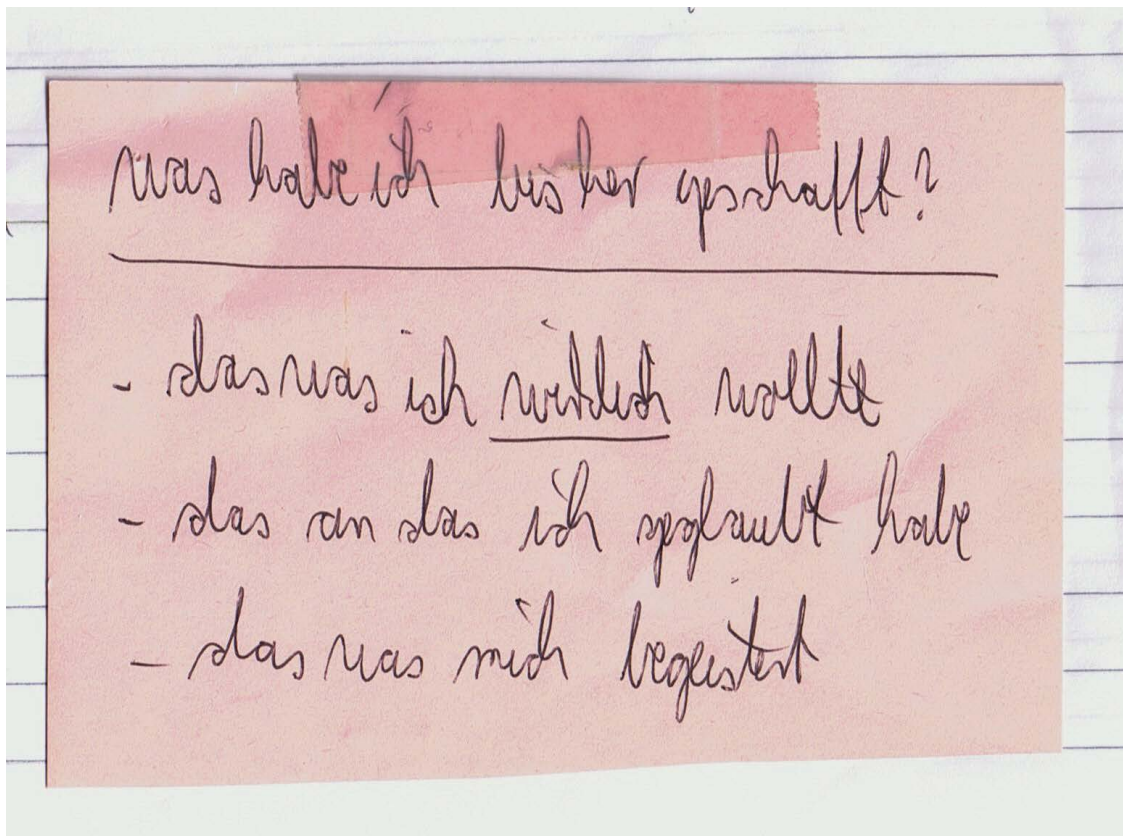 was habe ich bisher geschafft?
- das was ich wirklich wollte
- das an das ich geglaubt habe
- das was mich begeistert